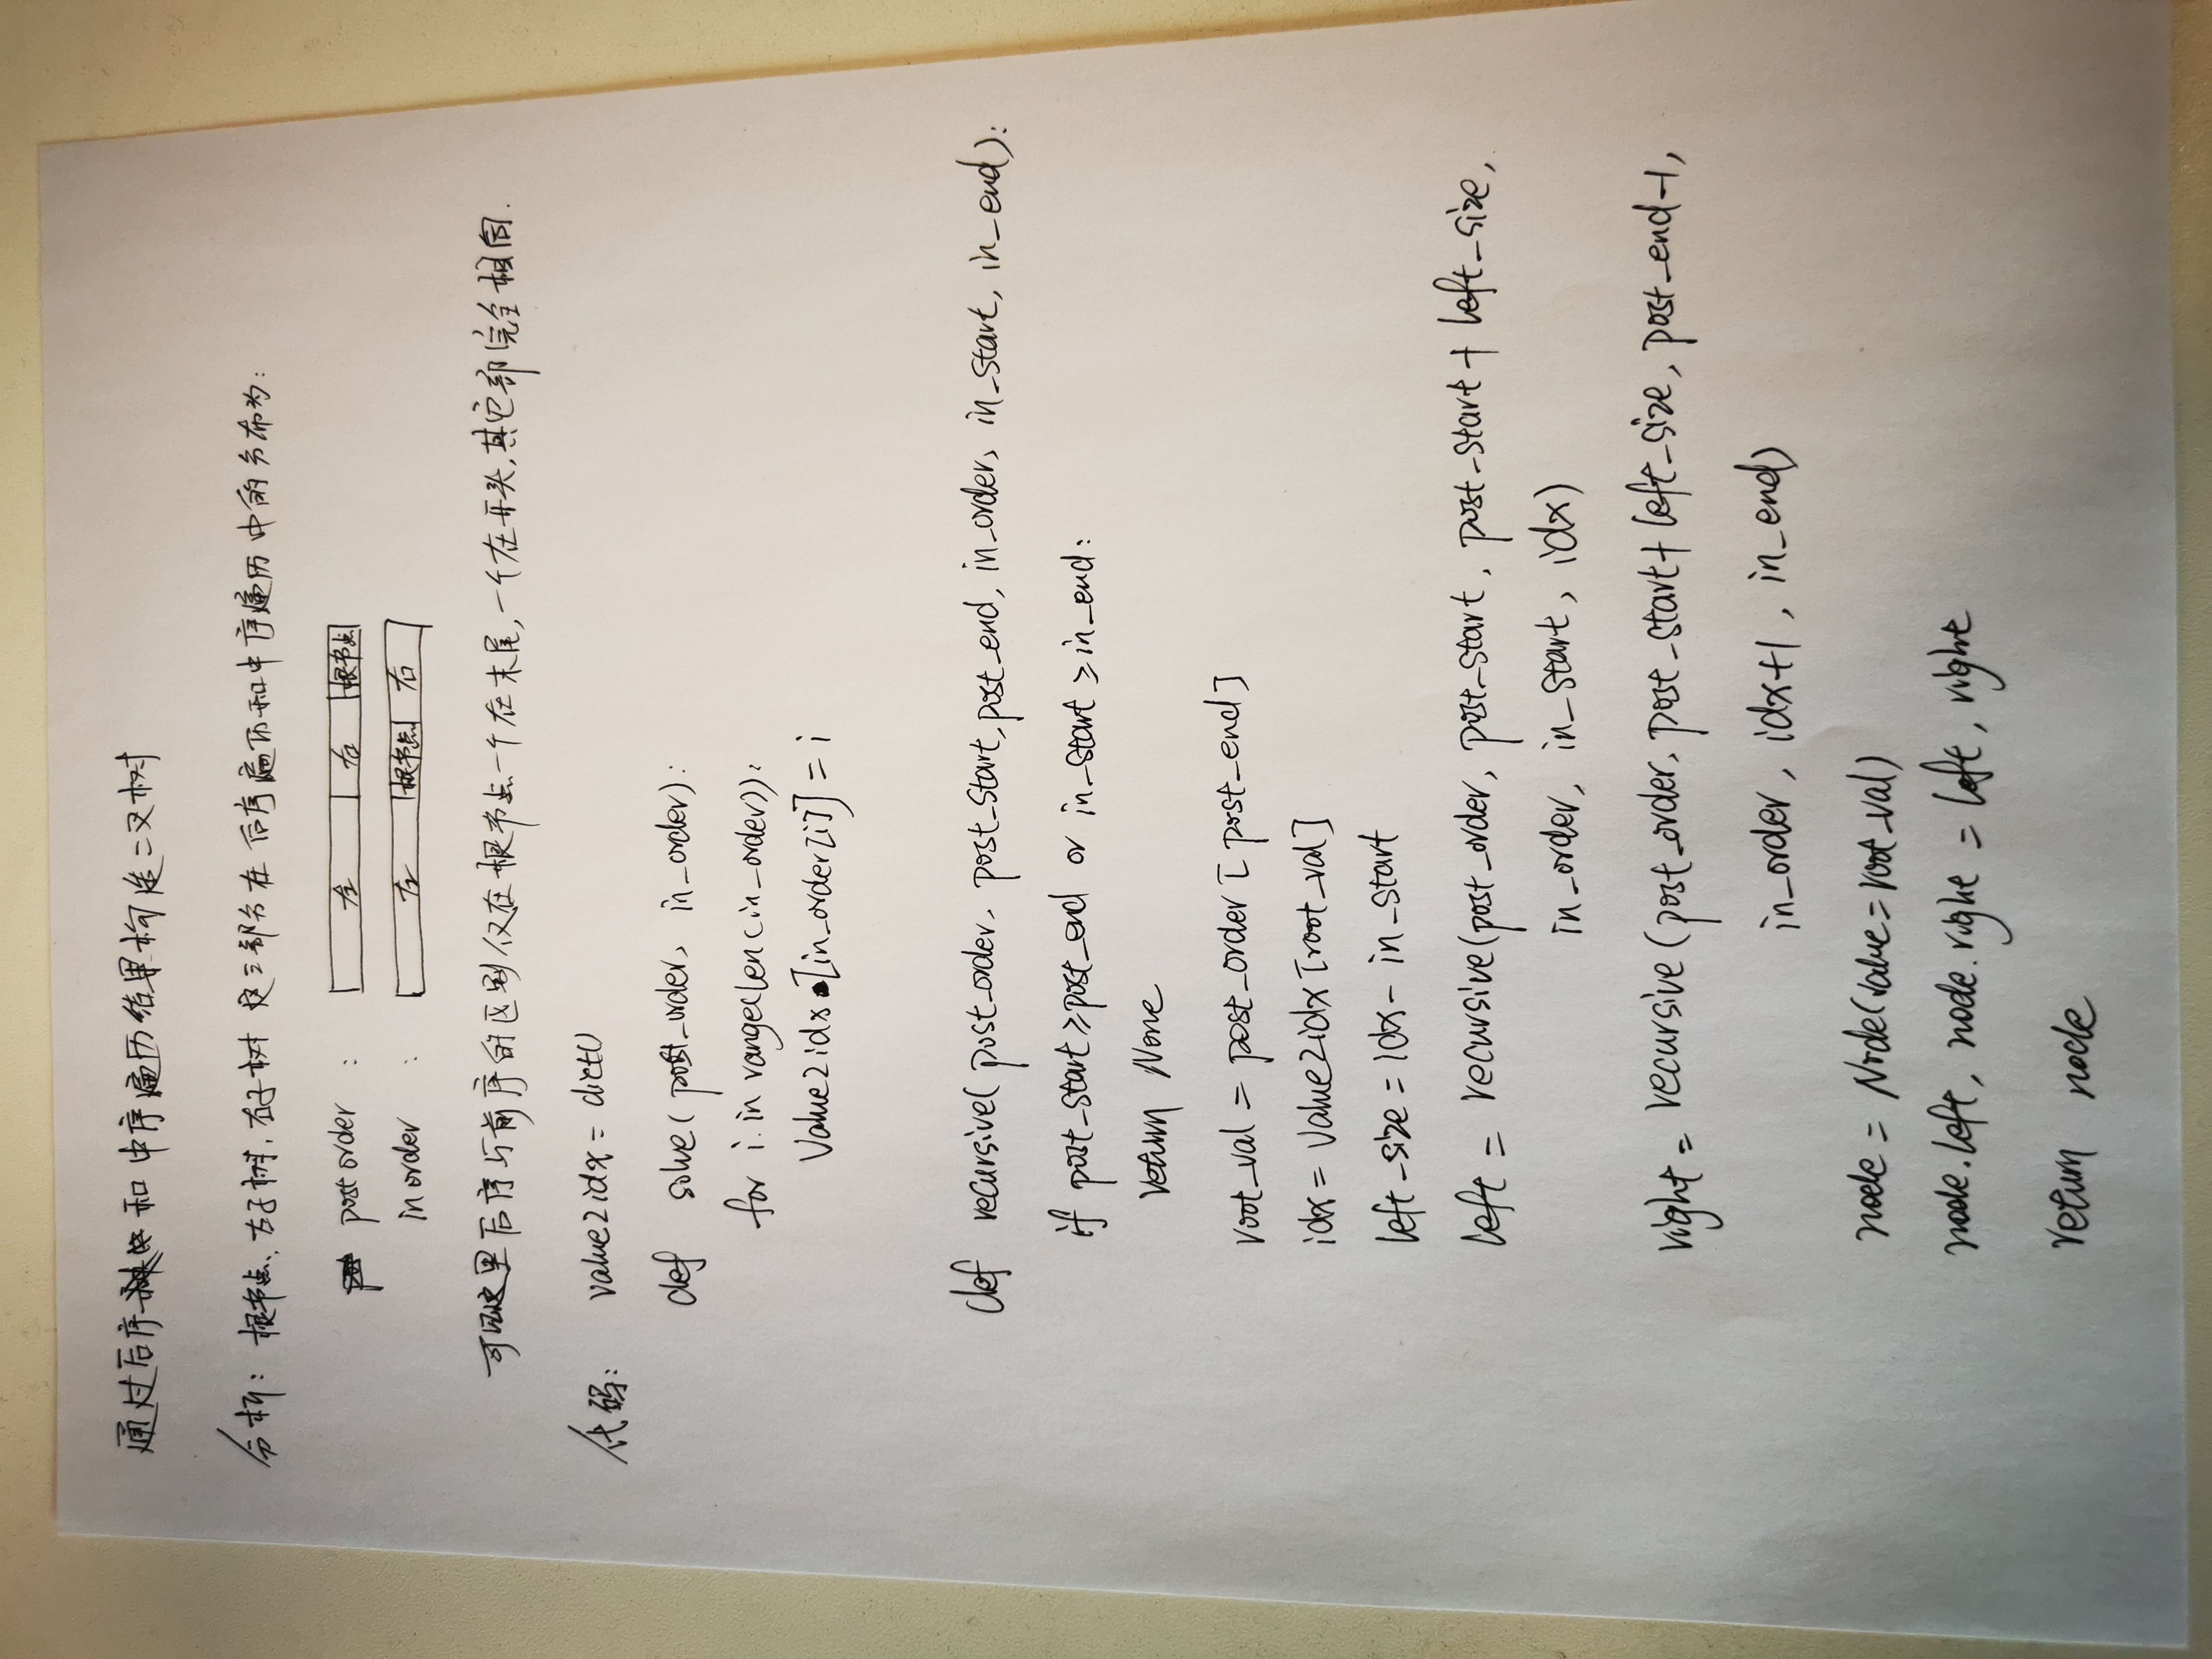 通过后序和中序遍历结果构造二叉树
分析: 根节点、左子树, 右子树 这三部分在 后序遍历和中序遍历中的分布为:
post order : 左 右 根节点
in order : 左 根节点 右
可见这里后序与前序的区别仅在根节点一个在末尾,一个在开头,其它部完全相同.
代码: value2idx = dict()
def solve( post_order, in_order):
for i in range(len(in_order)):
value2idx[in_order[i]] = i
def recursive( post_order, post_start, post_end, in_order, in_start, in_end):
if post_start ≥ post_end or in_start ≥ in_end:
return None
root_val = post_order [ post_end ]
idx = value2idx [root_val]
left_size = idx - in_start
left = recursive(post_order, post_start, post_start + left_size,
in_order, in_start, idx)
right = recursive (post_order, post_start + left_size, post_end-1,
in_order, idx+1, in_end)
node = Node(value = root_val)
node.left, node.right = left, right
return node